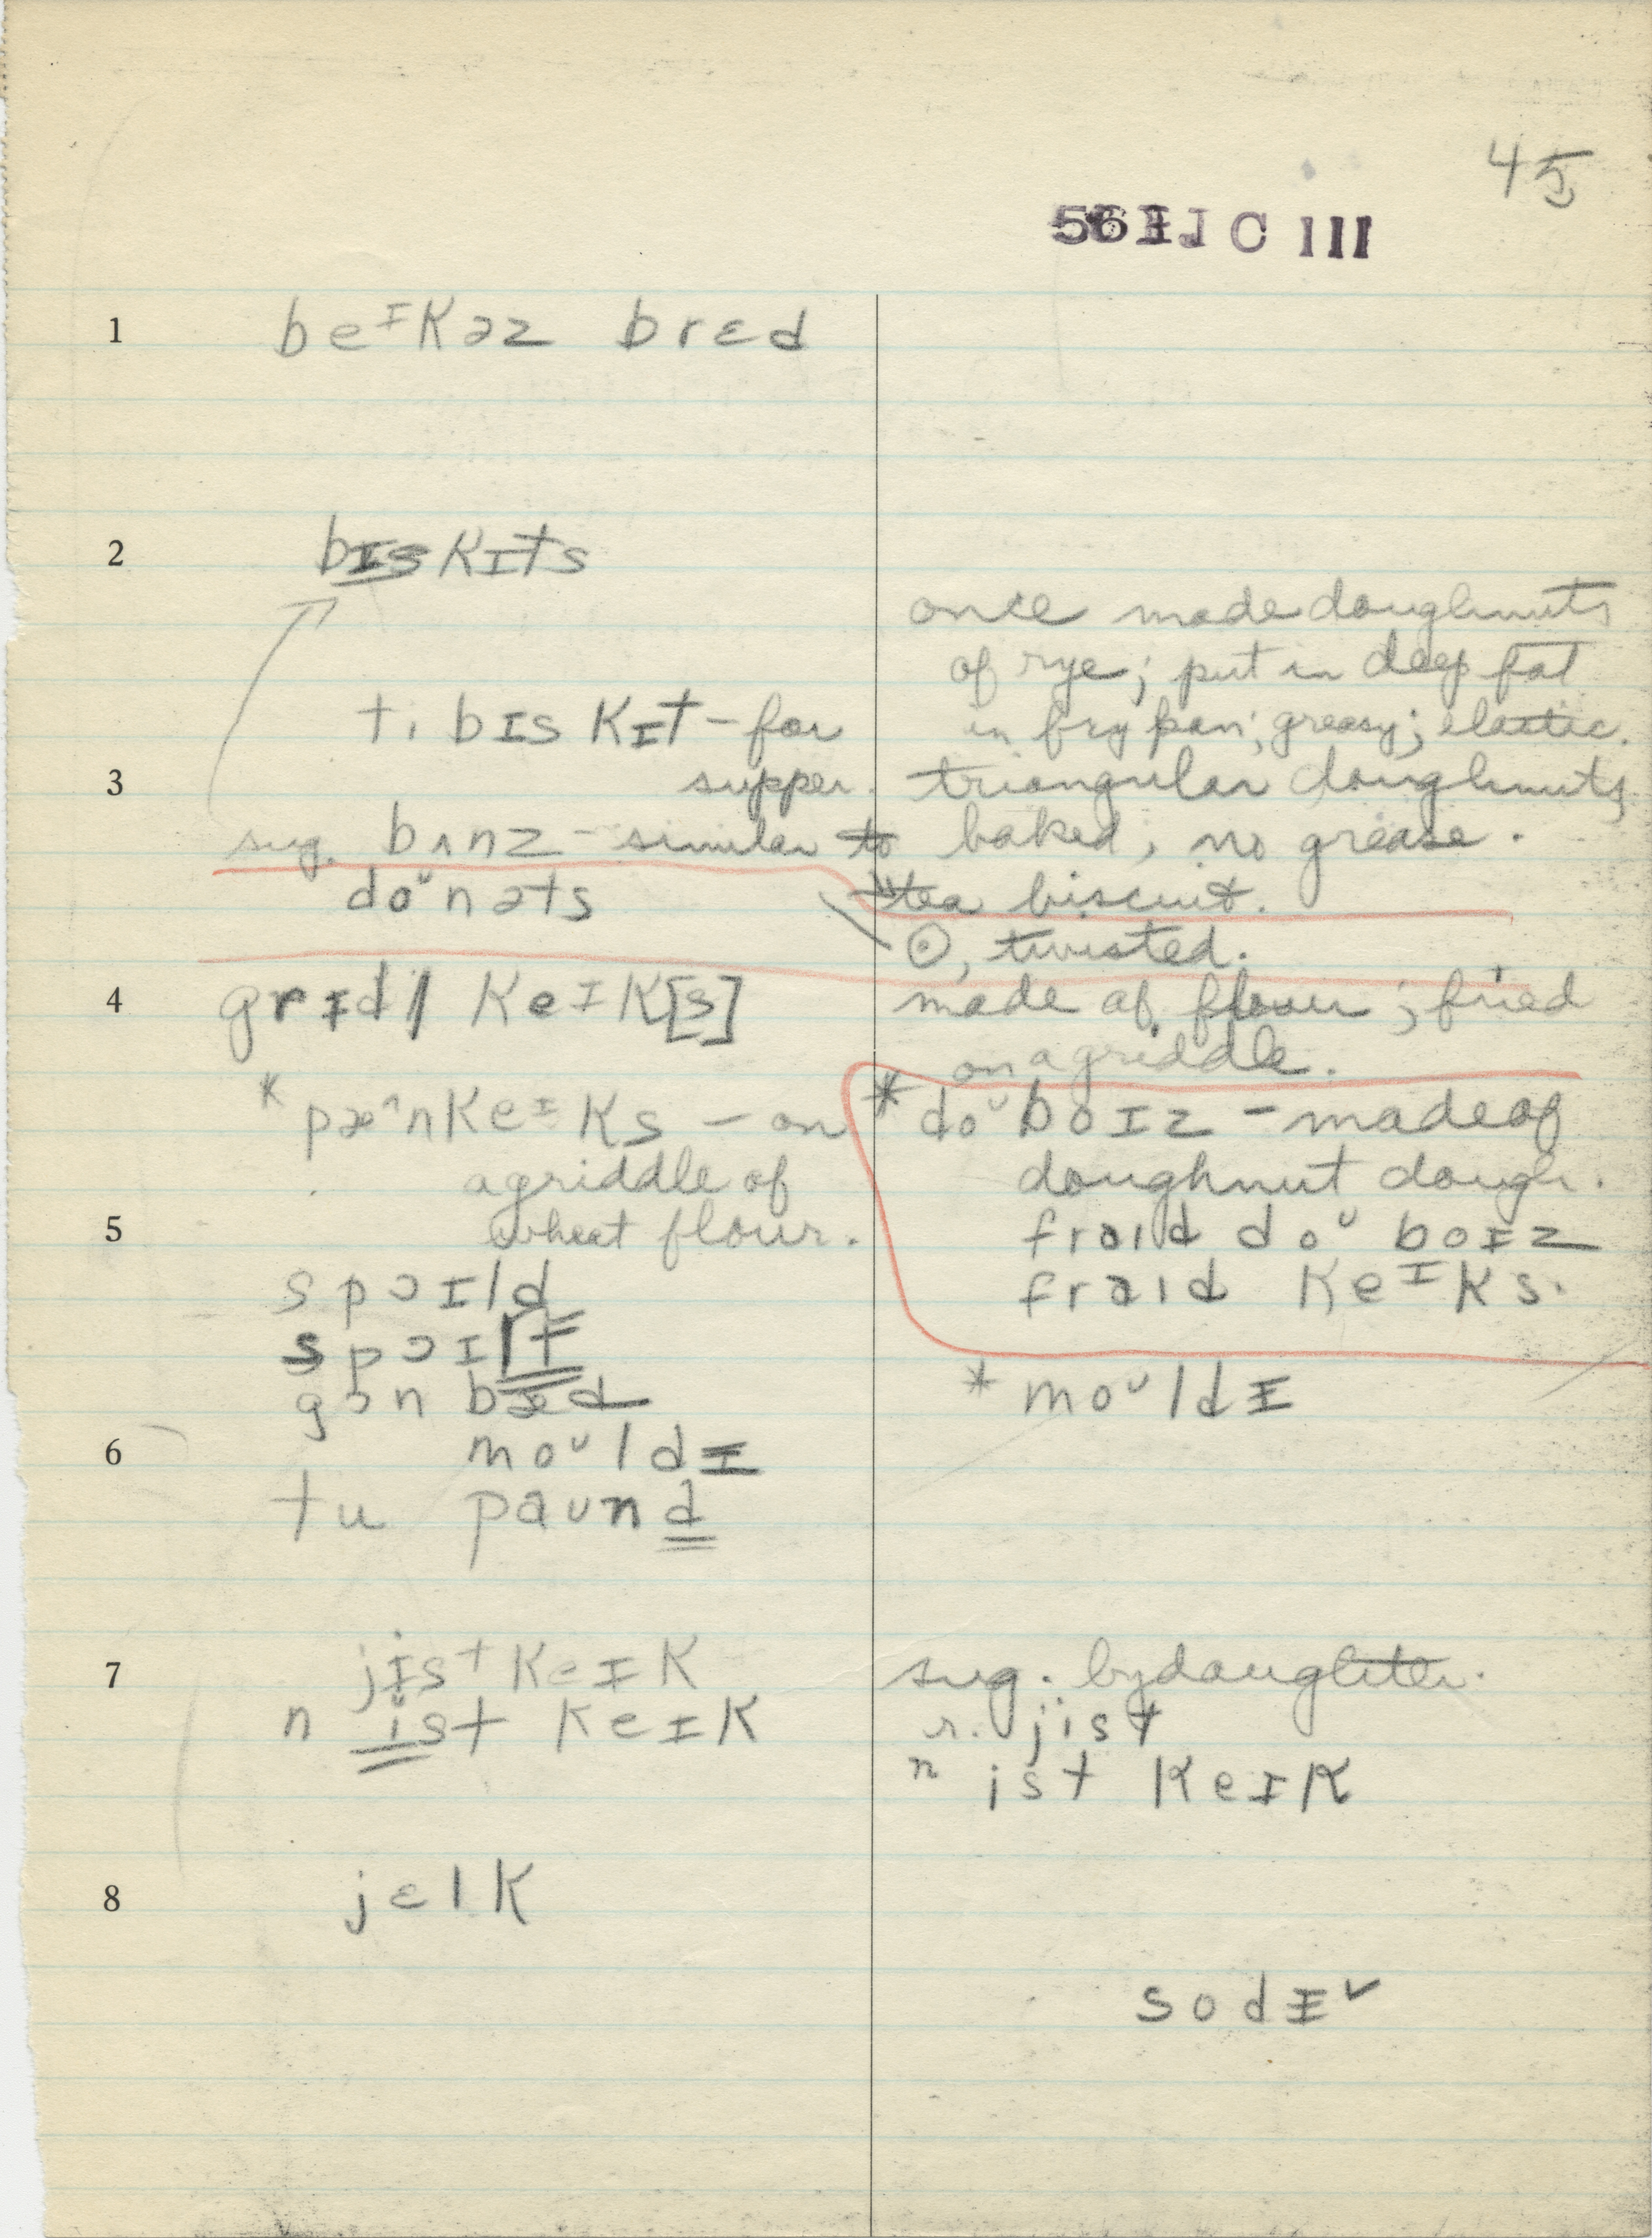 45
C III
1 beᴵkəz brɛd
2 bɪskɪts
once made doughnuts
of rye; put in deep fat
ti bɪskɪt – for
in fry pan; greasy; elastic.
3 supper.
triangular doughnuts
sug. bʌnz – similar to
baked, no grease.
tea biscuit.
doᶷnəts
⊙, twisted.
4 grɪdl keɪk[s]
made of flour; fried
on a griddle.
* pæ^nkeɪks – on
a griddle of
5 wheat flour.
* doᶷboɪz – made of
doughnut dough.
fraɪd doᶷ boɪz
fraɪd keᴵks.
spɔɪld
spɔɪlt
gɔn bæd
* moᶷldɪ
6 moᶷldɪ
tu paund
7 jɪst keɪk
sug. by daughter.
n ist keɪk
r. jist
n ist keɪk
8 jɛlk
sodɪ ✓